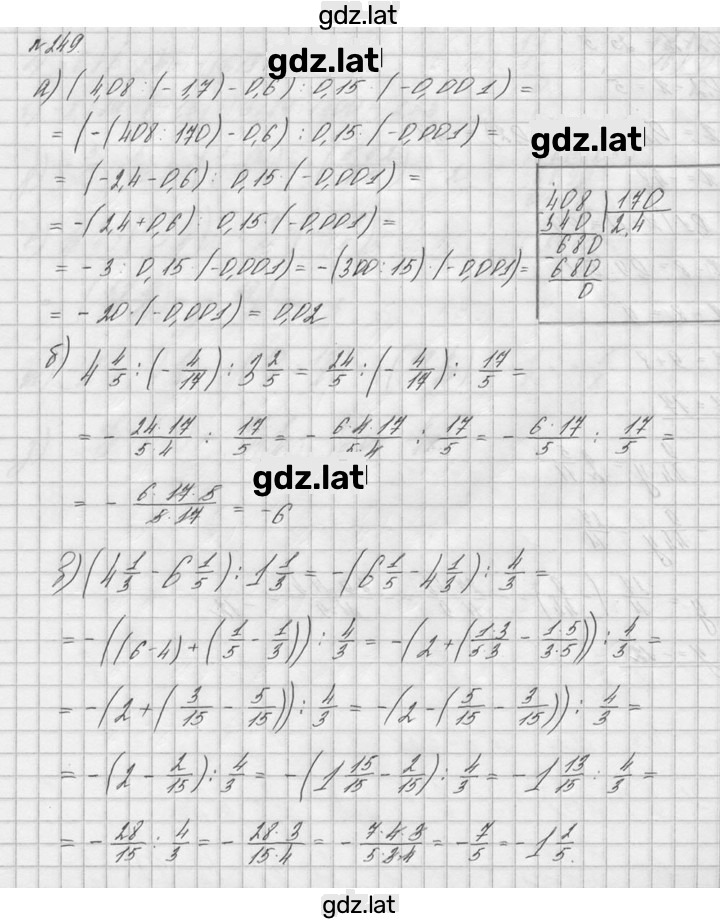 gdz.lat
№249.
gdz.lat
а) (4,08 : (-1,7) - 0,6) : 0,15 · (-0,001) =
= (-(408 : 170) - 0,6) : 0,15 · (-0,001) =
gdz.lat
= (-2,4 - 0,6) : 0,15 · (-0,001) =
= -(2,4 + 0,6) : 0,15 · (-0,001) =
= -3 : 0,15 · (-0,001) = -(300 : 15) · (-0,001) =
= -20 · (-0,001) = 0,02
408 | 170
340 | 2,4
680
680
0
б) 4 4/5 : (- 4/17) : 3 2/5 = 24/5 : (- 4/17) : 17/5 =
= - 24·17/5·4 : 17/5 = - 6·4·17/5·4 : 17/5 = - 6·17/5 : 17/5 =
gdz.lat
= - 6·17·5/5·17 = -6
в) (4 1/3 - 6 1/5) : 1 1/3 = -(6 1/5 - 4 1/3) : 4/3 =
= -((6-4) + (1/5 - 1/3)) : 4/3 = -(2 + (1·3/5·3 - 1·5/3·5)) : 4/3 =
= -(2 + (3/15 - 5/15)) : 4/3 = -(2 - (5/15 - 3/15)) : 4/3 =
= -(2 - 2/15) : 4/3 = -(1 15/15 - 2/15) : 4/3 = -1 13/15 : 4/3 =
= - 28/15 : 4/3 = - 28·3/15·4 = - 7·4·3/5·3·4 = - 7/5 = -1 2/5.
gdz.lat